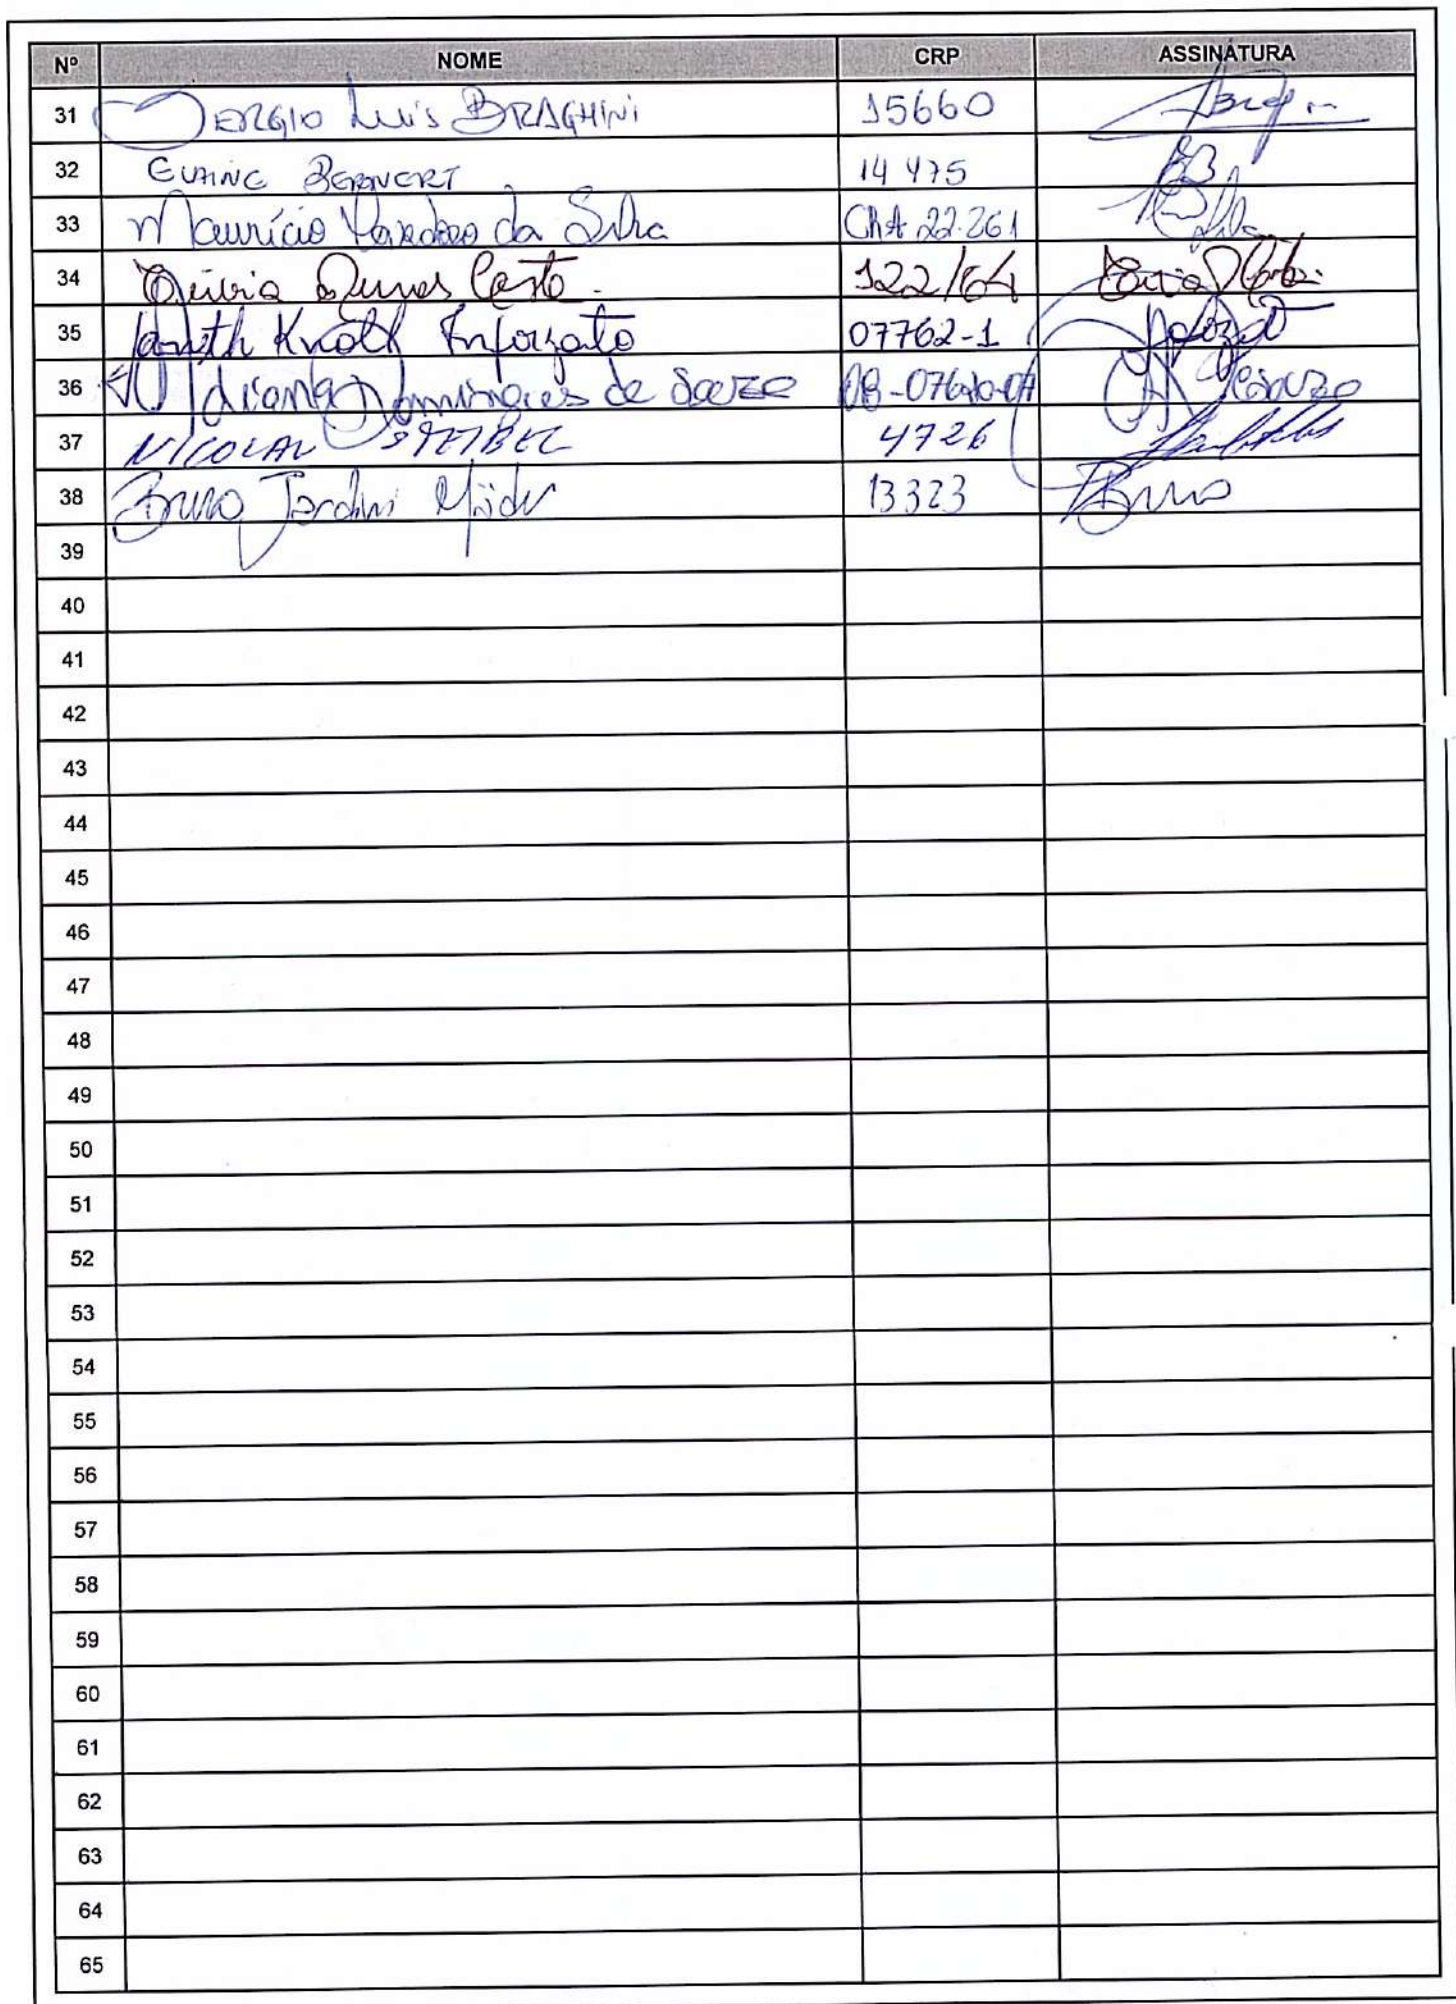 Nº NOME CRP ASSINATURA
31 SERGIO LUIS BRAGHINI 15660
32 ELAINE BERNERT 14475
33 Maurício Cardoso da Silva CRA 22.261
34 Costa 122/64
35 Knoth Inforzato 07762-1
36 Adriana Domingues de Souza
37 NICOLAU STEIBEL 4726
38 Bruno Jardini Mäder 13323 Bruno
39
40
41
42
43
44
45
46
47
48
49
50
51
52
53
54
55
56
57
58
59
60
61
62
63
64
65